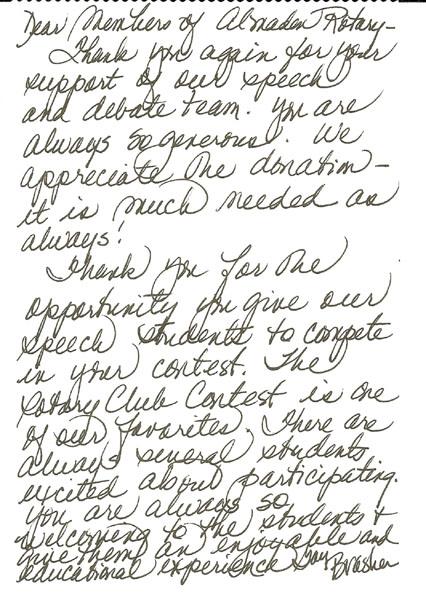 Dear Members of Almaden Rotary-
Thank you again for your
support of our speech
and debate team. You are
always so generous. We
appreciate the donation -
it is much needed as
always!
Thank you for the
opportunity you give our
speech students to compete
in your contest. The
Rotary Club Contest is one
of our favorites. There are
always several students
excited about participating.
You are always so
welcoming to the students +
give them an enjoyable and
educational experience Gay Brasher